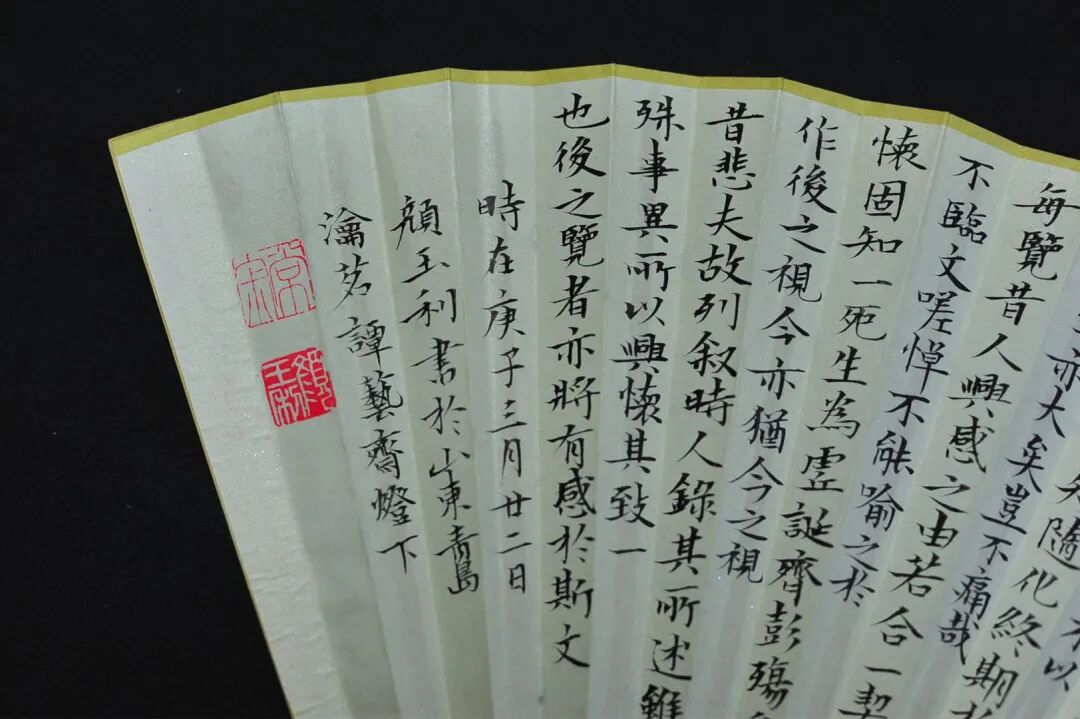 以
隨化終期於
亦大矣豈不痛哉
每覽昔人興感之由若合一契
不臨文嗟悼不能喻之於
懷固知一死生為虛誕齊彭殤
作後之視今亦猶今之視
昔悲夫故列敘時人錄其所述雖
殊事異所以興懷其致一
也後之覽者亦將有感於斯文
時在庚子三月廿二日
顏玉利書於山東青島
瀹茗譚藝齋燈下
顏玉利